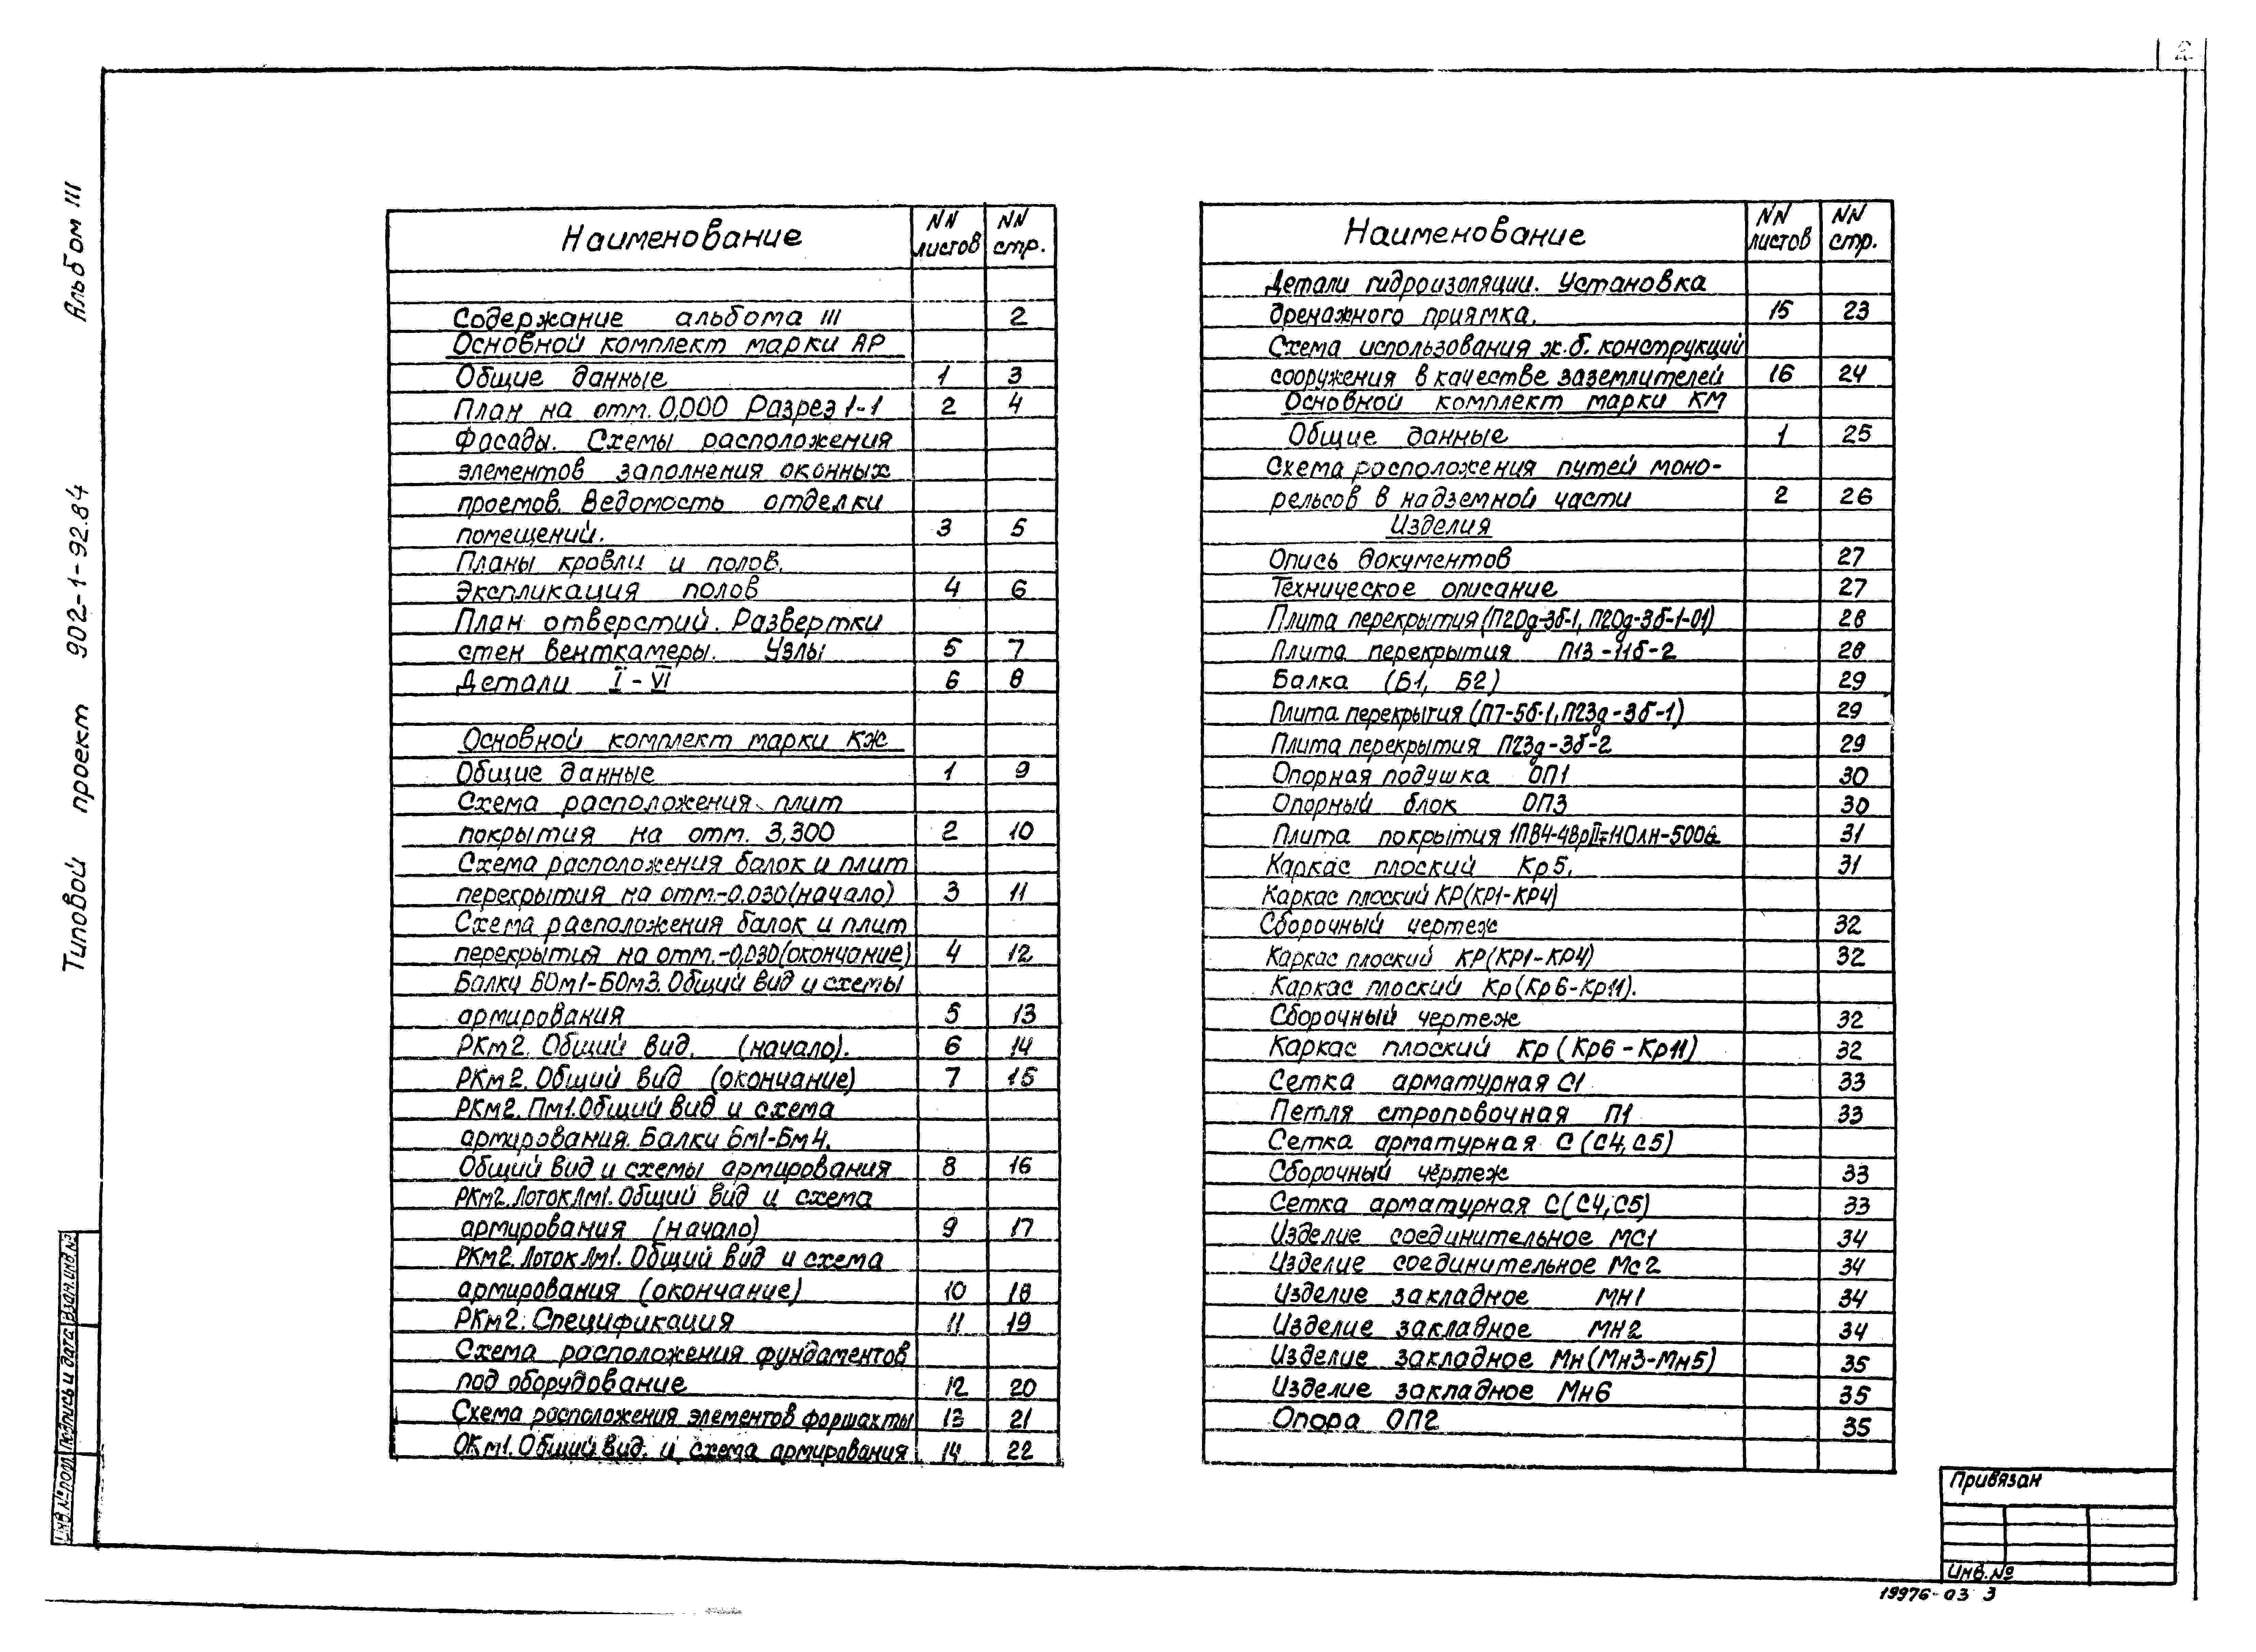 2
Альбом III
Типовой проект 902-1-92.84
Наименование NN листов NN стр.
Содержание альбома III 2
Основной комплект марки АР
Общие данные 1 3
План на отм. 0,000 Разрез 1-1 2 4
Фасады. Схемы расположения
элементов заполнения оконных
проемов. Ведомость отделки
помещений. 3 5
Планы кровли и полов.
Экспликация полов 4 6
План отверстий. Развертки
стен венткамеры. Узлы 5 7
Детали I - VI 6 8
Основной комплект марки КЖ
Общие данные 1 9
Схема расположения плит
покрытия на отм. 3,300 2 10
Схема расположения балок и плит
перекрытия на отм.-0,030 (начало) 3 11
Схема расположения балок и плит
перекрытия на отм.-0,030 (окончание) 4 12
Балки БОм1-БОм3. Общий вид и схемы
армирования 5 13
РКм2. Общий вид. (начало). 6 14
РКм2. Общий вид (окончание) 7 15
РКм2. Пм1. Общий вид и схема
армирования. Балки Бм1-Бм4.
Общий вид и схемы армирования 8 16
РКм2. Лоток Лм1. Общий вид и схема
армирования (начало) 9 17
РКм2. Лоток Лм1. Общий вид и схема
армирования (окончание) 10 18
РКм2. Спецификация 11 19
Схема расположения фундаментов
под оборудование 12 20
Схема расположения элементов форшахты 13 21
ОКм1. Общий вид. и схема армирования 14 22
Наименование NN листов NN стр.
Детали гидроизоляции. Установка
дренажного приямка. 15 23
Схема использования ж.б. конструкций
сооружения в качестве заземлителей 16 24
Основной комплект марки КМ
Общие данные 1 25
Схема расположения путей моно-
рельсов в надземной части 2 26
Изделия
Опись документов 27
Техническое описание 27
Плита перекрытия (П20д-3б-1, П20д-3б-1-01) 28
Плита перекрытия П13-11б-2 28
Балка (Б1, Б2) 29
Плита перекрытия (П7-5б-1, П23д-3б-1) 29
Плита перекрытия П23д-3б-2 29
Опорная подушка ОП1 30
Опорный блок ОП3 30
Плита покрытия 31
Каркас плоский Кр5. 31
Каркас плоский КР (КР1-КР4)
Сборочный чертеж 32
Каркас плоский КР (КР1-КР4) 32
Каркас плоский Кр (Кр6-Кр11).
Сборочный чертеж 32
Каркас плоский Кр (Кр6-Кр11) 32
Сетка арматурная С1 33
Петля строповочная П1 33
Сетка арматурная С (С4, С5)
Сборочный чертеж 33
Сетка арматурная С (С4, С5) 33
Изделие соединительное МС1 34
Изделие соединительное Мс2 34
Изделие закладное МН1 34
Изделие закладное МН2 34
Изделие закладное Мн (Мн3-Мн5) 35
Изделие закладное Мн6 35
Опора ОП2 35
Привязан
Инв. №
19976-03 3
Инв. № подл. Подпись и дата Взам. инв. №